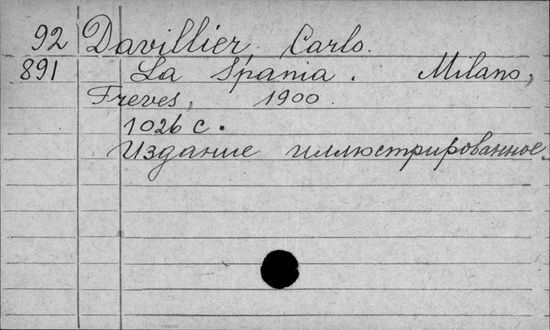 92 Davillier, Carlo.
891 La Spania. Milano,
Freves, 1900.
1026 с.
Издание иллюстрированное.